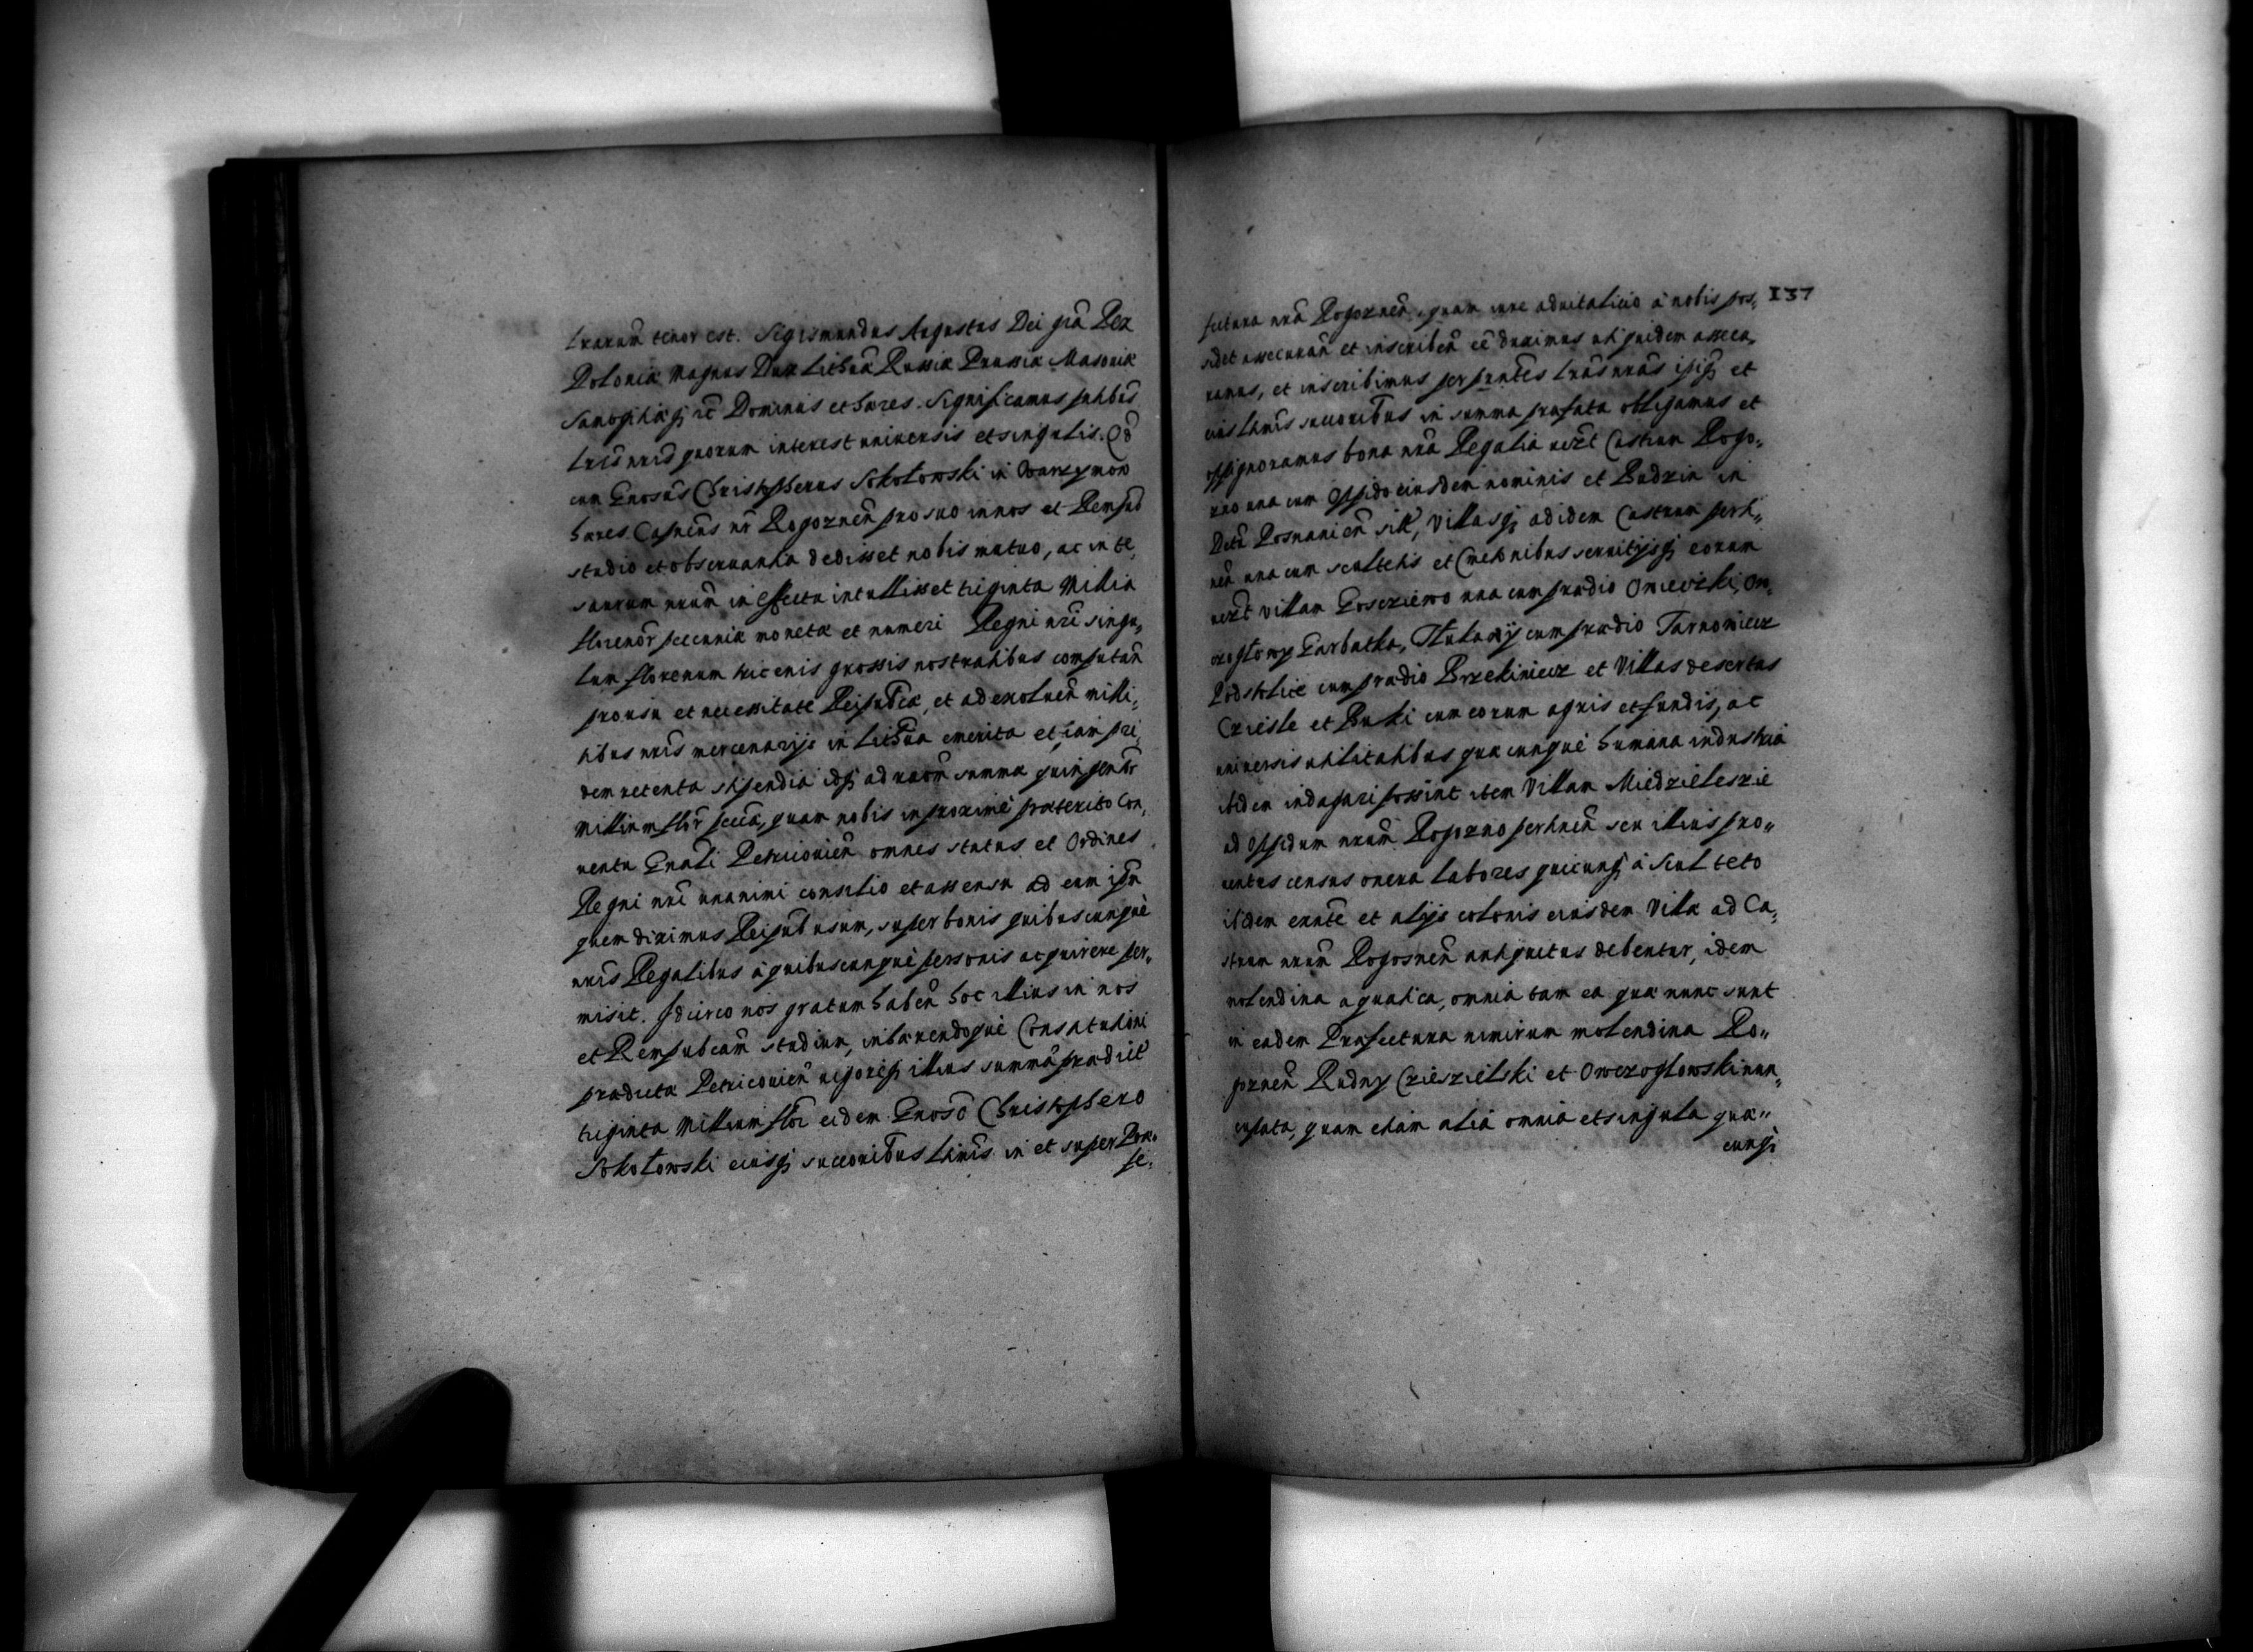 lrarum tenor est. Sigismundus Augustus Dei grã Rex
Poloniæ Magnus Dux Lithuã Russiæ Prussiæ Masoviæ
Samogitiæq; ec̃ Dominus et hæres. Significamus pntibus
lris nris quorum interest universis et singulis. Qd
cum Gnosus Christopherus Sokołowski in Wanzymow
hæres Capneus nr Rogoznen̄ pro suo in nos et Rempub
studio et observantia dedisset nobis mutuo, ac in te,
saurum nrum in effectu intullisset triginta Millia
florenor pecuniæ monetæ et numeri Regni nri singu„
lum florenum tricenis grossis nostratibus computan̄
pro usu et necessitate Reipubcæ, et ad exolven̄ mili,
tibus nris mercenarijs in Lithua emerita et iam pri,
dem retenta stipendia idq; ad raõm summæ quingentor
Millium flor̄ pecũ, quam nobis in proxime præterito Con,
ventu Gnali Petricovien̄ omnes status et Ordines
Regni nri unanimi consilio et assensu ad eum ipm
quem diximus Reipub usum, super bonis quibuscunque
nris Regalibus à quibuscunquè personis acquirere per„
misit. Idcirco nos gratum haben̄ hoc illius in nos
et Rempubcam studium, inhærendoquè Constitutioni
prædictæ Petricovien̄ vigoreq; illius summã prædict̄
triginta Millium flor̄ eidem Gnoso Christophero
Sokołowski eiusq; succoribus ltimis in et super Præ„
fe,
137
fectura nrã Rogoznen̄, quam iure advitalicio à nobis pos,
sidet assecuran̄ et inscriben̄ eẽ duximus uti quidem assecu,
ramus, et inscribimus per pntes lras nras ipiq; et
eius ltimis succoribus in summa præfata obligamus et
oppignoramus bona nra Regalia vizt Castrum Rogo„
zno una cum Oppido eiusdem nominis et Budzin in
Dctu Posnanien̄ sit̄, Villasq; ad idem Castrum perti„
nen̄ una cum scultetis et Cmetonibus servitijsq; eorum
vizt Villam Gosciewo una cum prædio Owieczki, Ow,
czogłowy Garbatka, Tłukawy cum prædio Tarnowiecz
Podstolice cum prædio Brzekiniecz et Villas desertas
Cziesle et Buki cum eorum agris et fundis, ac
universis utilitatibus quæcunquè humana industria
ibidem indagari possint item Villam Miedzieleszie
ad Oppidum nrum Rogozno pertinen̄ seu illius pro„
ventus census onera labores quicunq; à Sculteto
ibidem exnte et alijs colonis eiusdem Villæ ad Ca,
strum nrum Rogosnen̄ antiquitus debentur, idem
molendina aquatica, omnia tam ea quæ nunc sunt
in eadem Præfectura nimirum molendina Ro„
goznen̄ Rudny Czieszielski et Owczogłowski nun„
cupata, quam etiam alia omnia et singula quæ„
cunq;